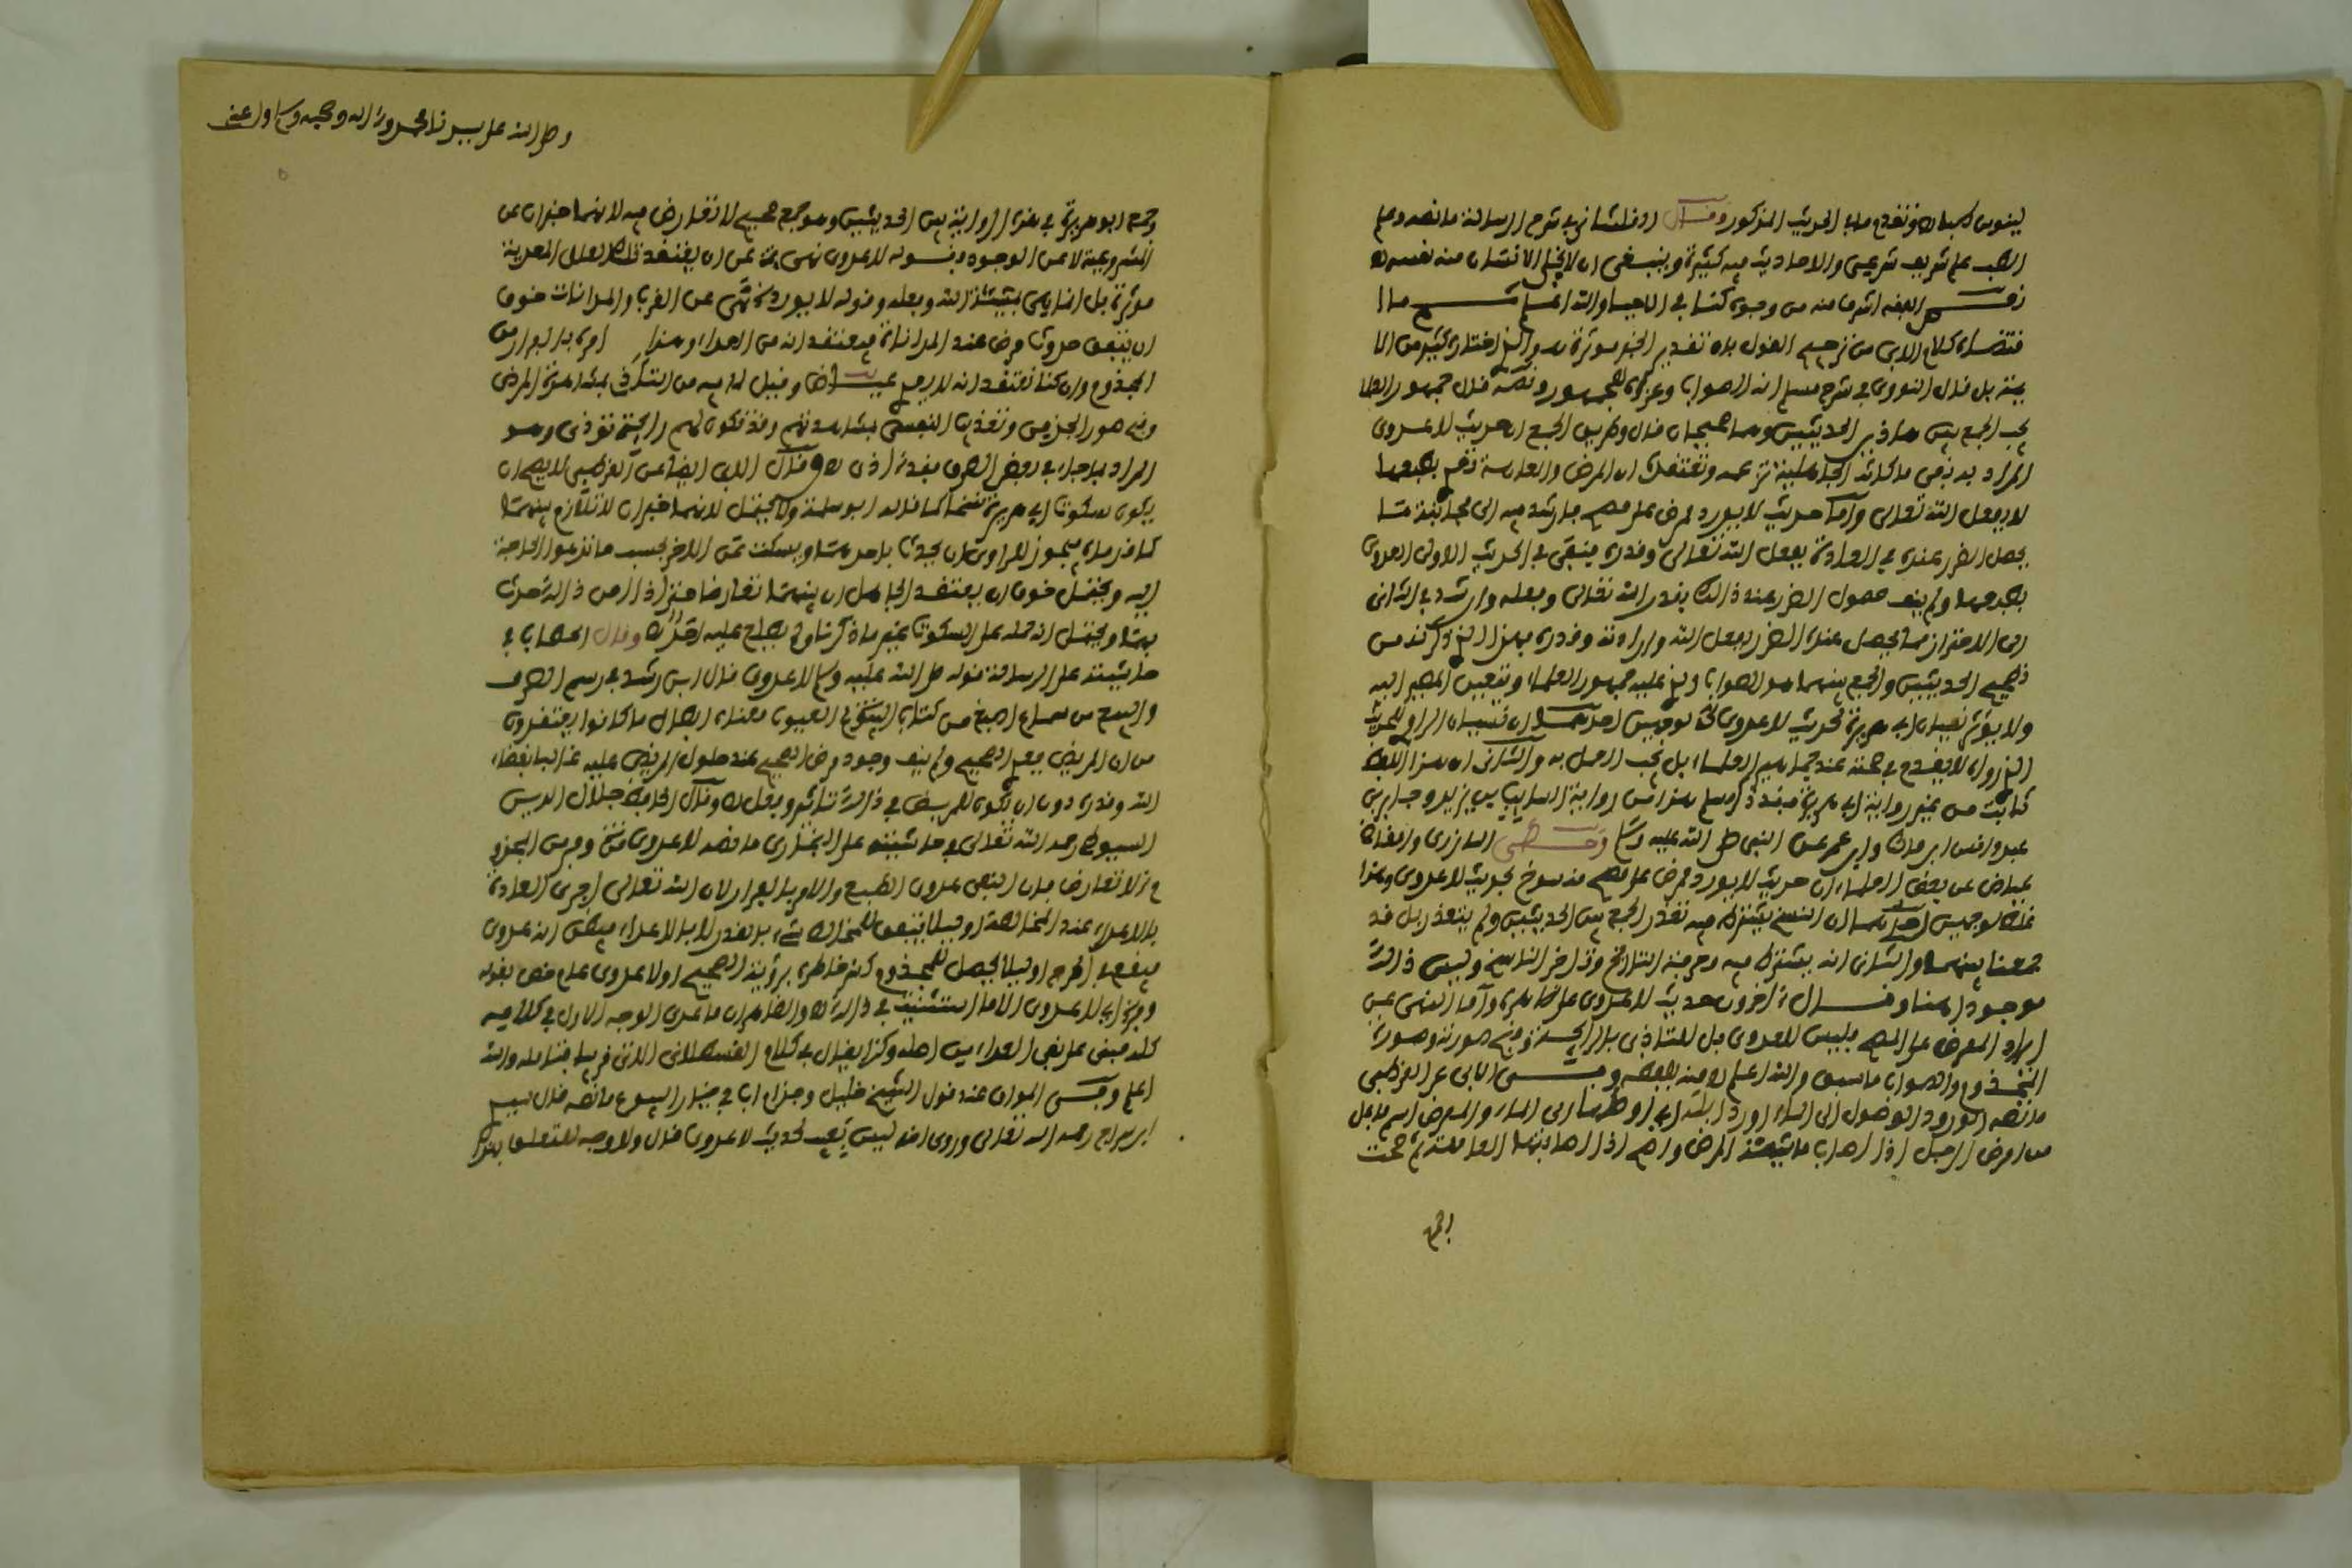 لينوس اهباه وتقدم ماء الحديث المذكور وقال القلشاني في شرح الرسالة ما نصه وعلم
الطب علم شريف شرعي والاحاديث فيه كثيرة وينبغي ان لا يخلي الانسان منه نفسه
الفقه اشرف منه من وجوه كذا في الاحياء والله اعلم
كلام الابي من ترجيح القول بان تقدير الخبر موثرة هو الذي اختاره كثير من الا
يمة بل قال النووي في شرح مسلم انه الصواب وعزاه للجمهور ونصه قال جمهور العلما
يجب الجمع بين هاذين الحديثين وهما صحيحان قال وطريق الجمع ان حديث لا عدوى
المراد به نفي ما كانت الجاهلية تزعمه وتعتقده ان المرض والعاهة تعدي بطبعها
لا بفعل الله تعالى وأما حديث لا يورد ممرض على مصح فارشد فيه الى مجانبة ما
يحصل الضرر عنده في العادة بفعل الله تعالى وقدره فنفى في الحديث الاول العدوى
بطبعها ولم ينف حصول الضرر عند ذالك بقدر الله تعالى وفعله وارشد في الثاني
الى الاحتراز مما يحصل عنده الضرر بفعل الله وارادته وقدره فهذا الذي ذكرنا من
تصحيح الحديثين والجمع بينهما هو الصواب الذي عليه جمهور العلماء ويتعين المصير اليه
ولا يؤثر نسيان ابي هريرة لحديث لا عدوى لوجهين احدهما ان نسيان الراوي للحديث
الذي رواه لا يقدح في صحته عند جماهير العلماء بل يجب العمل به والثاني ان هذا اللفظ
ثابت من غير رواية ابي هريرة فقد ذكر مسلم هذا من رواية السايب بن يزيد وجابر بن
عبد وانس ابن مالك وابن عمر عن النبي صلى الله عليه وسلم وحكى المازري والقاضي
عياض عن بعض العلماء ان حديث لا يورد ممرض على مصح منسوخ بحديث لا عدوى وهذا
غلط لوجهين احدهما ان النسخ يشترط فيه تعذر الجمع بين الحديثين ولم يتعذر بل قد
جمعنا بينهما والثاني انه يشترط فيه معرفة التاريخ وتاخر الناسخ وليس ذالك
موجودا هنا وقال ءاخرون حديث لا عدوى على ظاهره وأما النهي عن
ايراد الممرض على المصح فليس للعدوى بل للتاذي بالرايحة وقبح صورته وصورة
المجذوم والصواب ما سبق والله اعلم اه منه بلفظه وفي الابي عن القرطبي
ما نصه الورود الوصول الى الماء اورد ابله اي اوصلها الى الماء والممرض اسم فاعل
من امرض الرجل اذا اصاب ماشيته المرض واصح اذا اصابتها العاهة ثم صحت
اهم
وصلى الله على سيدنا محمد وءاله وصحبه وسلم
وجمع ابو هريرة في هذه الرواية بين الحديثين وهو جمع صحيح لا تعارض فيه لانهما خبران عن
المشروعية لا عن الوجود فقوله لا عدوى نهي عن ان يعتقد ذلك وان العلل المعدية
موثرة بل انما هي بمشيئة الله وفعله وقوله لا يورد نهي عن القرب والمداناة خوف
ان يتفق حدوث مرض عند المداناة فيعتقد انه من العداء وهذا امره بالفرار من
المجذوم وان كنا نعتقد انه لا يعدي وقيل لما فيه من التاذي بمشاهدة المرضى
وقبح صور الجذمى وتقذر النفس بمشاهدتهم وقد تكون لهم رايحة توذي وهو
المراد بما جاء في بعض الطرق فقد ءاذى اه وقال الابي ايضا عن القرطبي لا يصح ان
يكون سكوت ابي هريرة نسخا كما قاله ابو سلمة ولا يحتمل لانهما خبران لا تلازم بينهما
كما قررناه فيجوز للراوي ان يحدث باحدهما ويسكت عن الاخر بحسب ما تدعوا الحاجة
اليه ويحتمل خوف ان يعتقد الجاهل ان بينهما تعارضا فيترك ذالك حدث
بهما ويحتمل انه حمله على السكوت غير ما ذكرنا ولم يطلع عليه احد اه وقال الحطاب في
حاشيته على الرسالة قوله صلى الله عليه وسلم لا عدوى قال ابن رشد في رسم الصرف
والبيع من سماع اصبغ من كتاب السلم والعيوب معناه ابطال ما كانوا يعتقدون
من ان المريض يعدي الصحيح ولم ينف وجود مرض الصحيح عند حلول المريض عليه غالبا بقضاء
الله وقدره دون ان يكون للمريض في ذالك تاثير وفعل اه وقال الحافظ جلال الدين
السيوطي رحمه الله تعالى في حاشيته على البخاري ما نصه لا عدوى مع وفر من المجذوم
لا تعارض فان النفي عدوى الطبع والامر بالفرار لان الله تعالى اجرى العادة
بالاعداء عند المخالطة او ليلا يتفق للمخالط شيء بالقدر لا بالاعداء فيظن انه عدوى
فيقع في الحرج او ليلا يحصل للمجذوم كسر خاطر برؤية الصحيح او لا عدوى عام خص بقوله
وفر اي لا عدوى الا ما استثنيت في ذالك اه والظاهر ان ما عدى الوجه الاول في كلامه
كله مبني على نفي العداء من اصله وكذا يقال في كلام القسطلاني الاتي قريبا فتامله والله
اعلم وفي المواق عند قول الشيخ خليل وجذام اب في خيار البيوع ما نصه قال
ابن سراج رحمه الله تعالى وروى انه ليس بعيب لحديث لا عدوى قال ولا وجه للتعلق بهذا